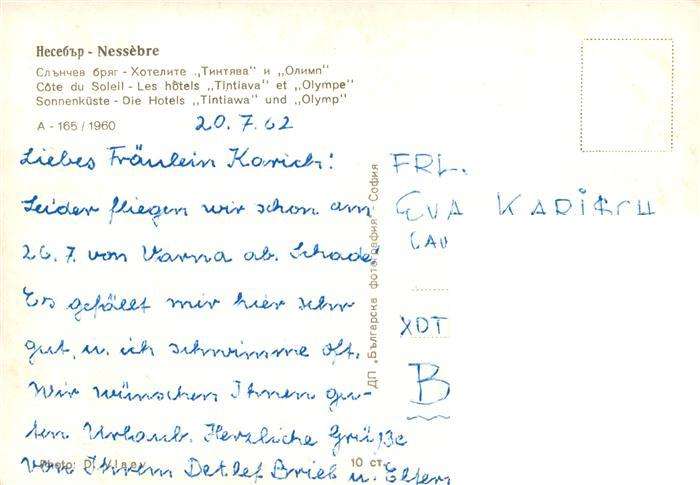 Несебър - Nessèbre
Слънчев бряг - Хотелите „Тинтява" и „Олимп"
Côte du Soleil - Les hôtels „Tintiava" et „Olympe"
Sonnenküste - Die Hotels „Tintiawa" und „Olymp"
A - 165 / 1960
20.7.62
Liebes Fräulein Karich!
Leider fliegen wir schon am
26.7. von Varna ab. Schade.
Es gefällt mir hier sehr
gut, u. ich schwimme oft.
Wir wünschen Ihnen gu-
ten Urlaub. Herzliche Grüße
von Ihrem Detlef Brieb u. Eltern
Photo: D.
10 ст.
ДП „Българска фотография" София
FRL.
EVA
ХОТ
B